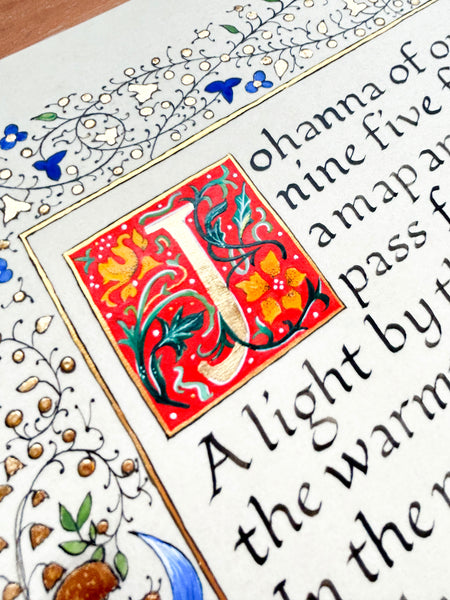 Johanna of
nine five
a map
pass
A light by
the warm
In the